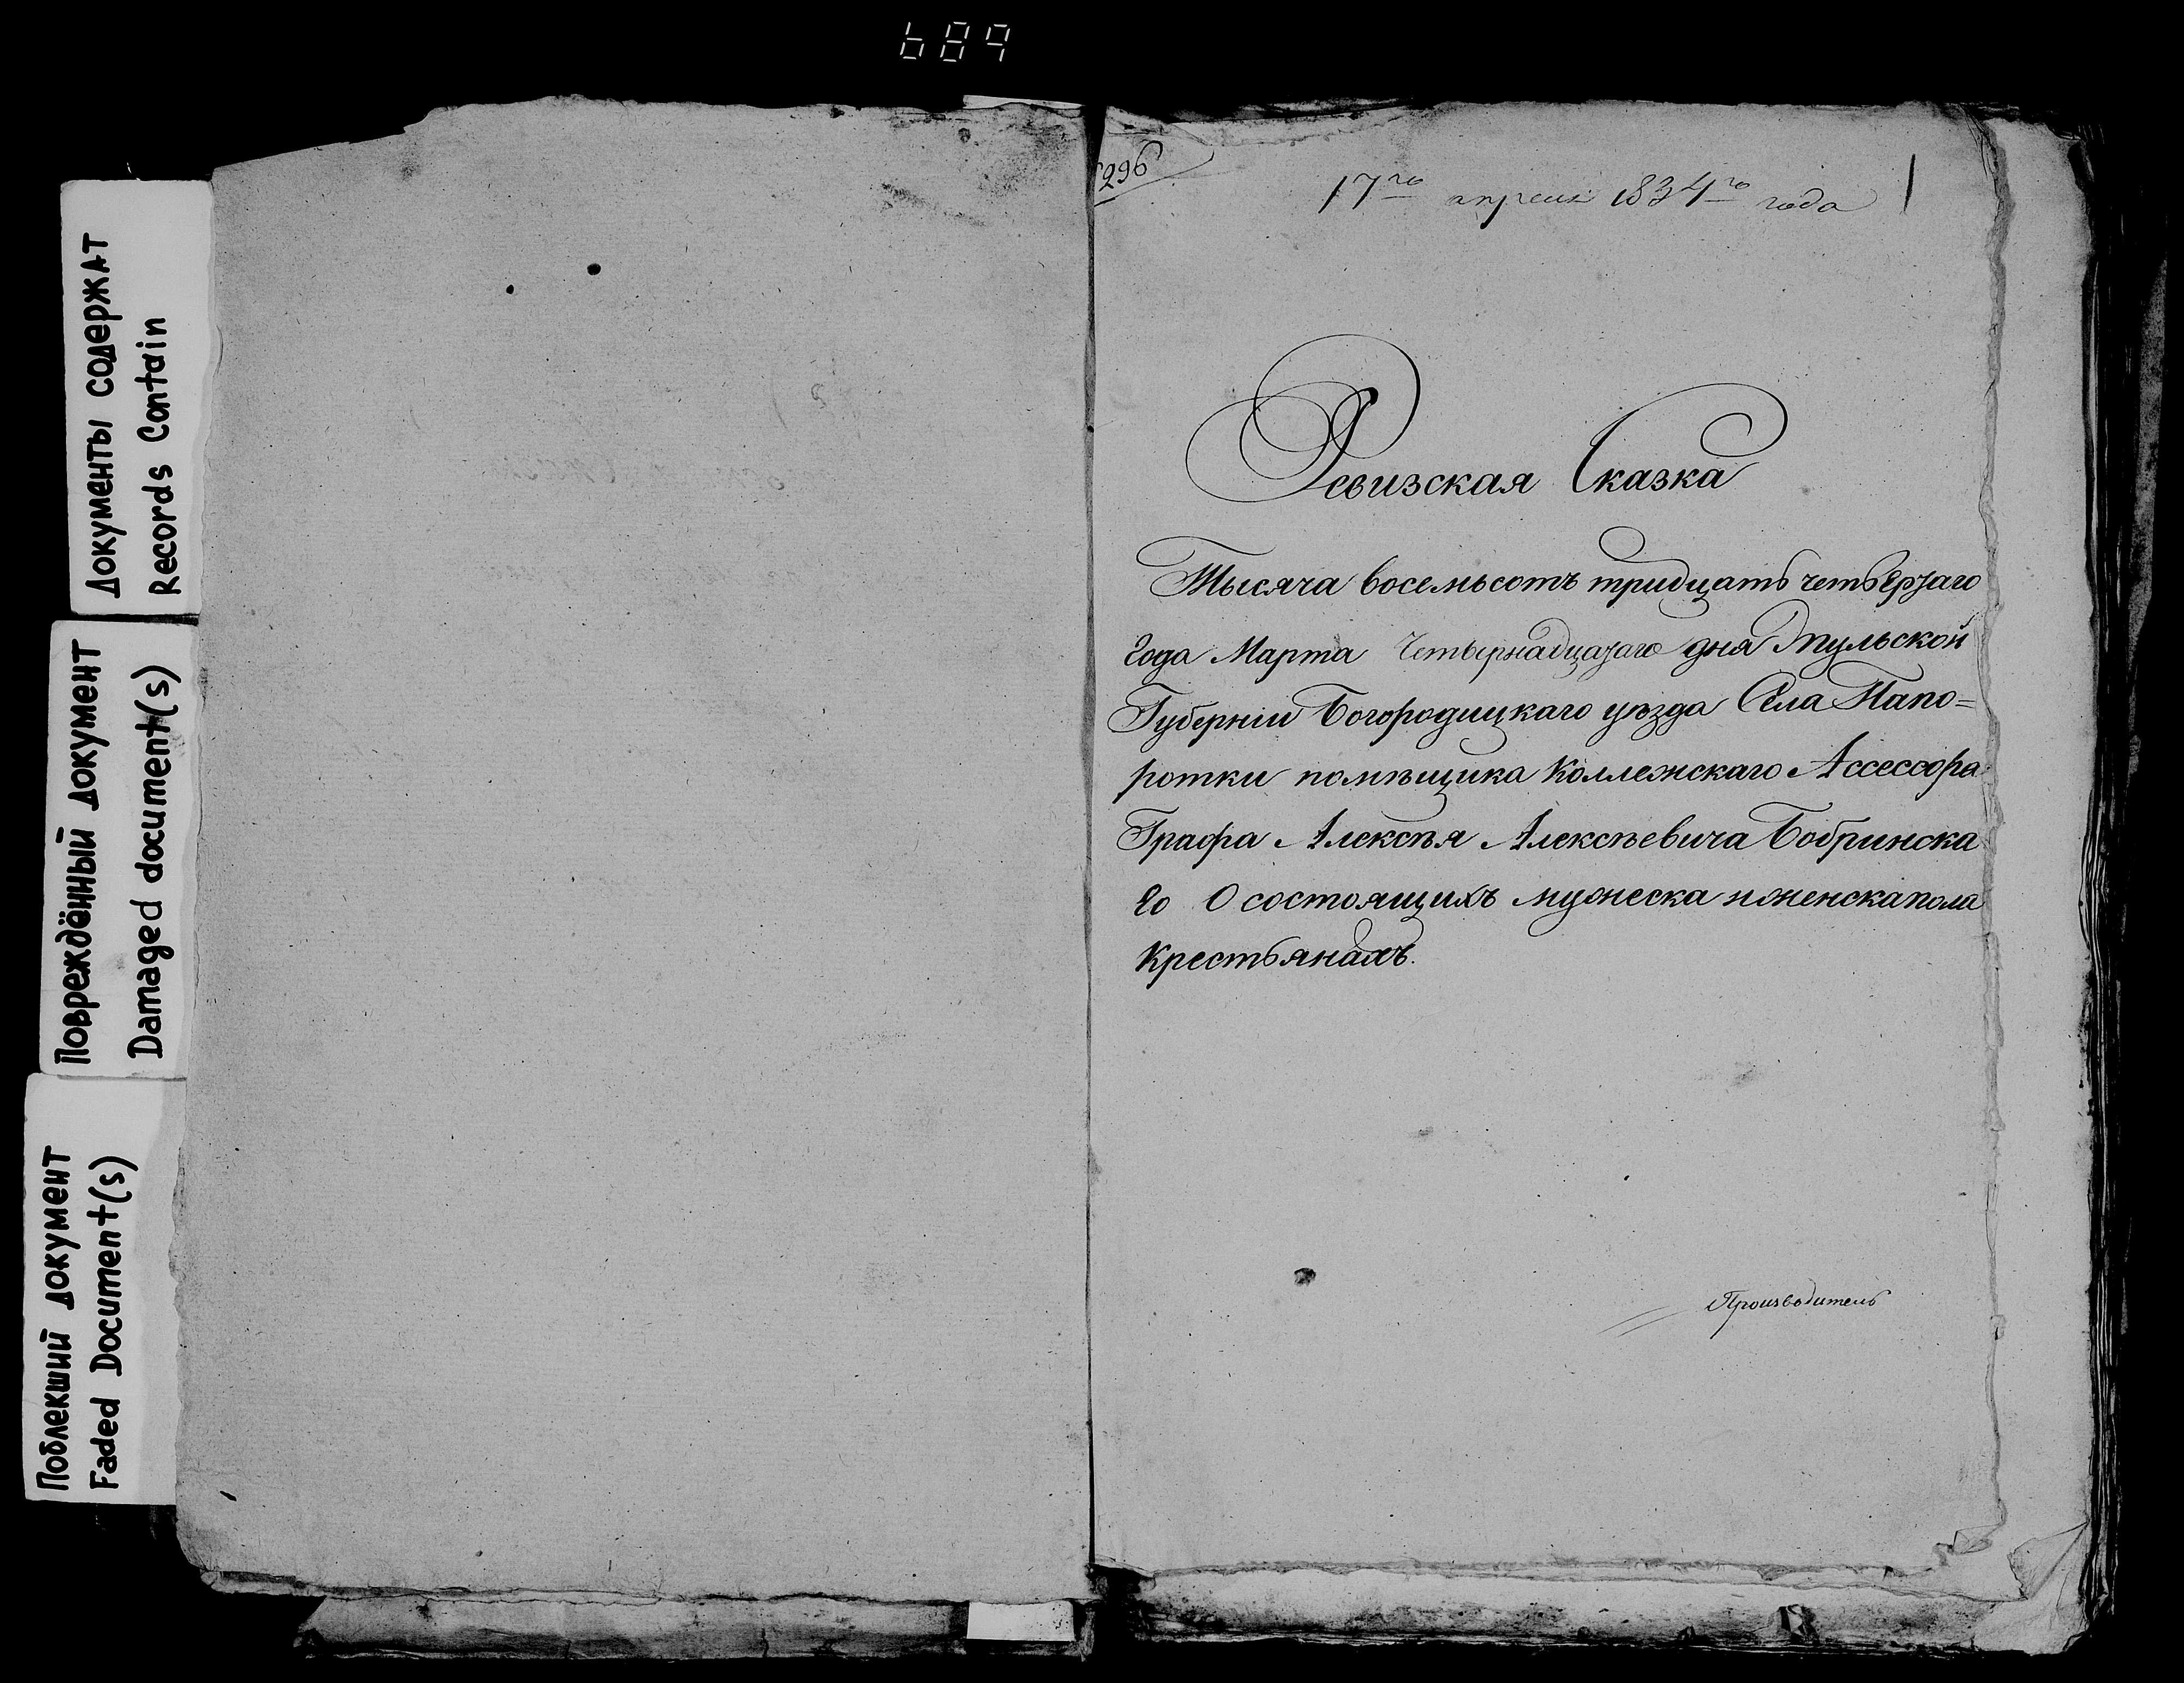 689
Документы содержат
Records Contain
Повреждённый документ
Damaged document(s)
Поблекший документ
Faded Document(s)
296
17го апреля 1834го года
1
Ревизская Сказка
Тысяча восемьсотъ тридцать четвертаго
Года Марта Четырнадцатаго дня Тульской
Губерніи Богородицкаго уѣзда Села Папо=
ротки помѣщика Коллежскаго Ассессора
Графа Алексѣя Алексѣевича Бобринска
го О состоящихъ мужеска и женска пола
Крестьянахъ.
Производитель